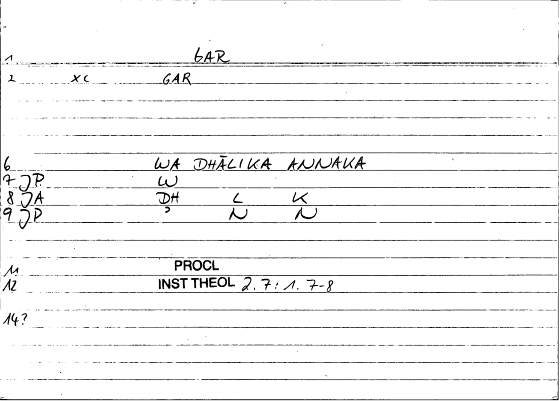 1 GAR
2 XC GAR
6 WA DHĀLIKA ANNAKA
7 JP W
8 JA DH L K
9 JD ʾ N N
11 PROCL
12 INST THEOL 2.7: 1.7-8
14?